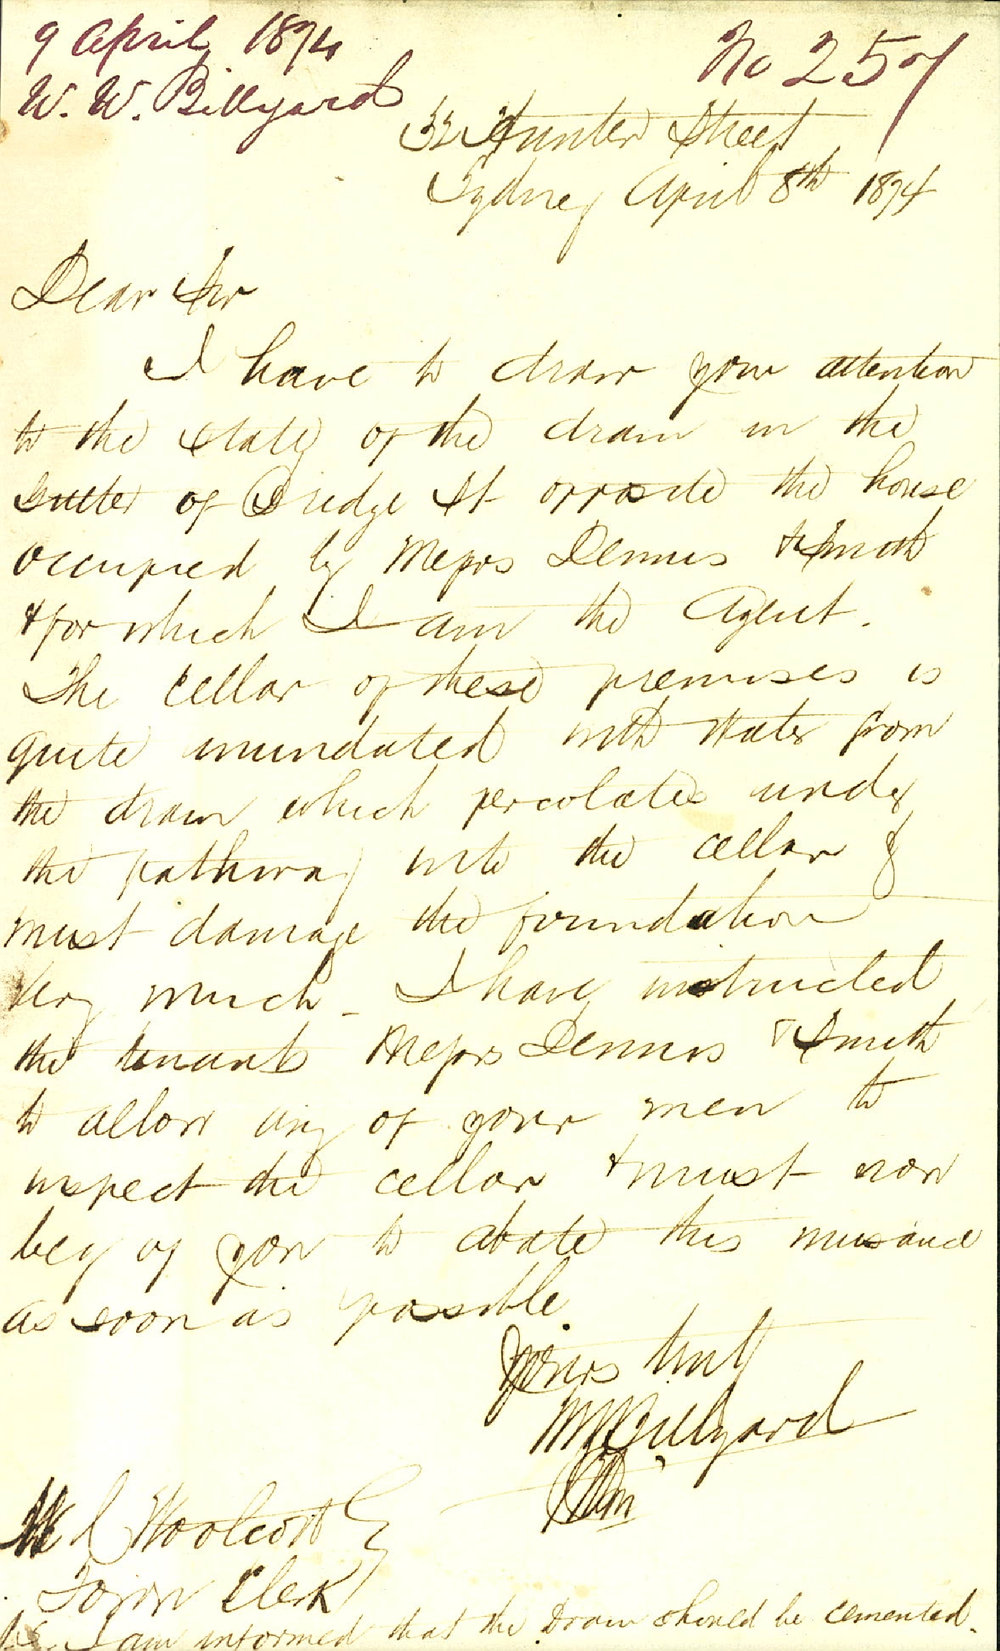 9 April 1874
W. W. Billyard
No 257
32 Hunter Street
Sydney April 8th 1874
Dear Sir
I have to draw your attention
to the state of the drain in the
Gutter of Bridge St opposite the house
occupied by Messrs Dennis & Smith
& for which I am the Agent.
The Cellar of these premises is
quite inundated with Water from
the drain which percolates under
the pathway into the cellar &
must damage the foundation
very much - I have instructed
the tenants Messrs Dennis & Smith
to allow any of your men to
inspect the cellar & must now
beg of you to abate this nuisance
as soon as possible.
Yours truly
WWBillyard
Woolcott
Town Clerk
I am informed that the Drain should be cemented.